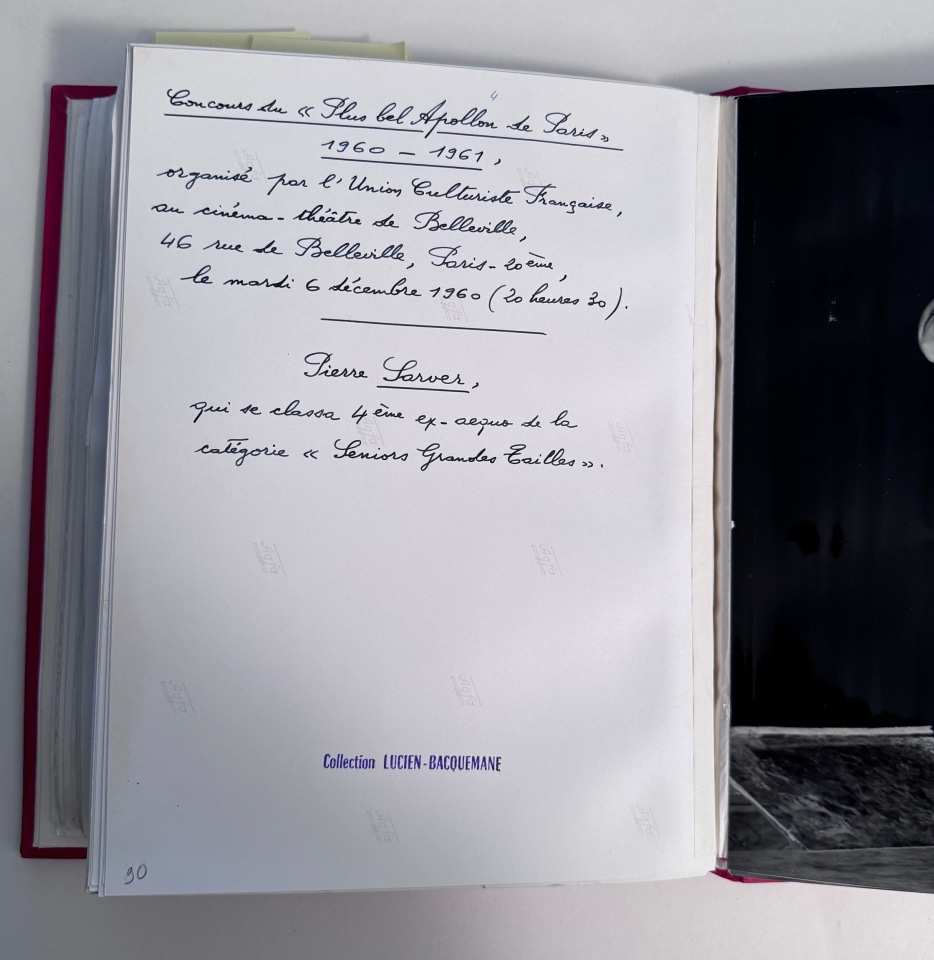 4
Concours du « Plus bel Apollon de Paris »
1960 – 1961,
organisé par l'Union Culturiste Française,
au cinéma-théâtre de Belleville,
46 rue de Belleville, Paris-20ème,
le mardi 6 décembre 1960 (20 heures 30).
Pierre Sarver,
qui se classa 4ème ex-aequo de la
catégorie « Seniors Grandes Tailles ».
Collection LUCIEN-BACQUEMANE
90